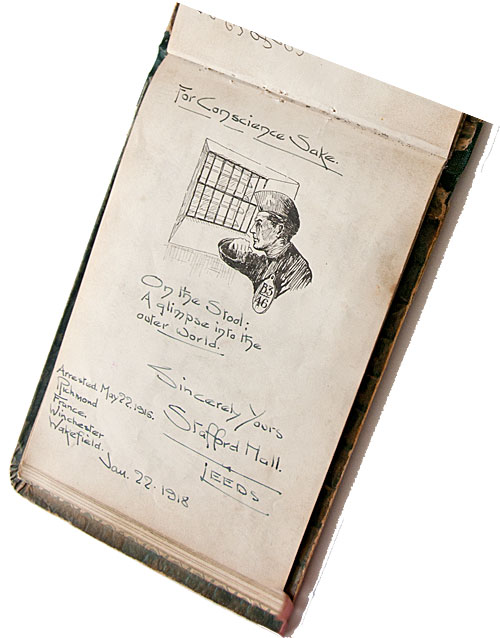 For Conscience Sake.
B3
46
On the Stool:
A glimpse into the
outer World.
Sincerely Yours
Stafford Hall.
LEEDS
Arrested. May 22. 1916.
Richmond
France.
Winchester
Wakefield.
Jan. 22. 1918